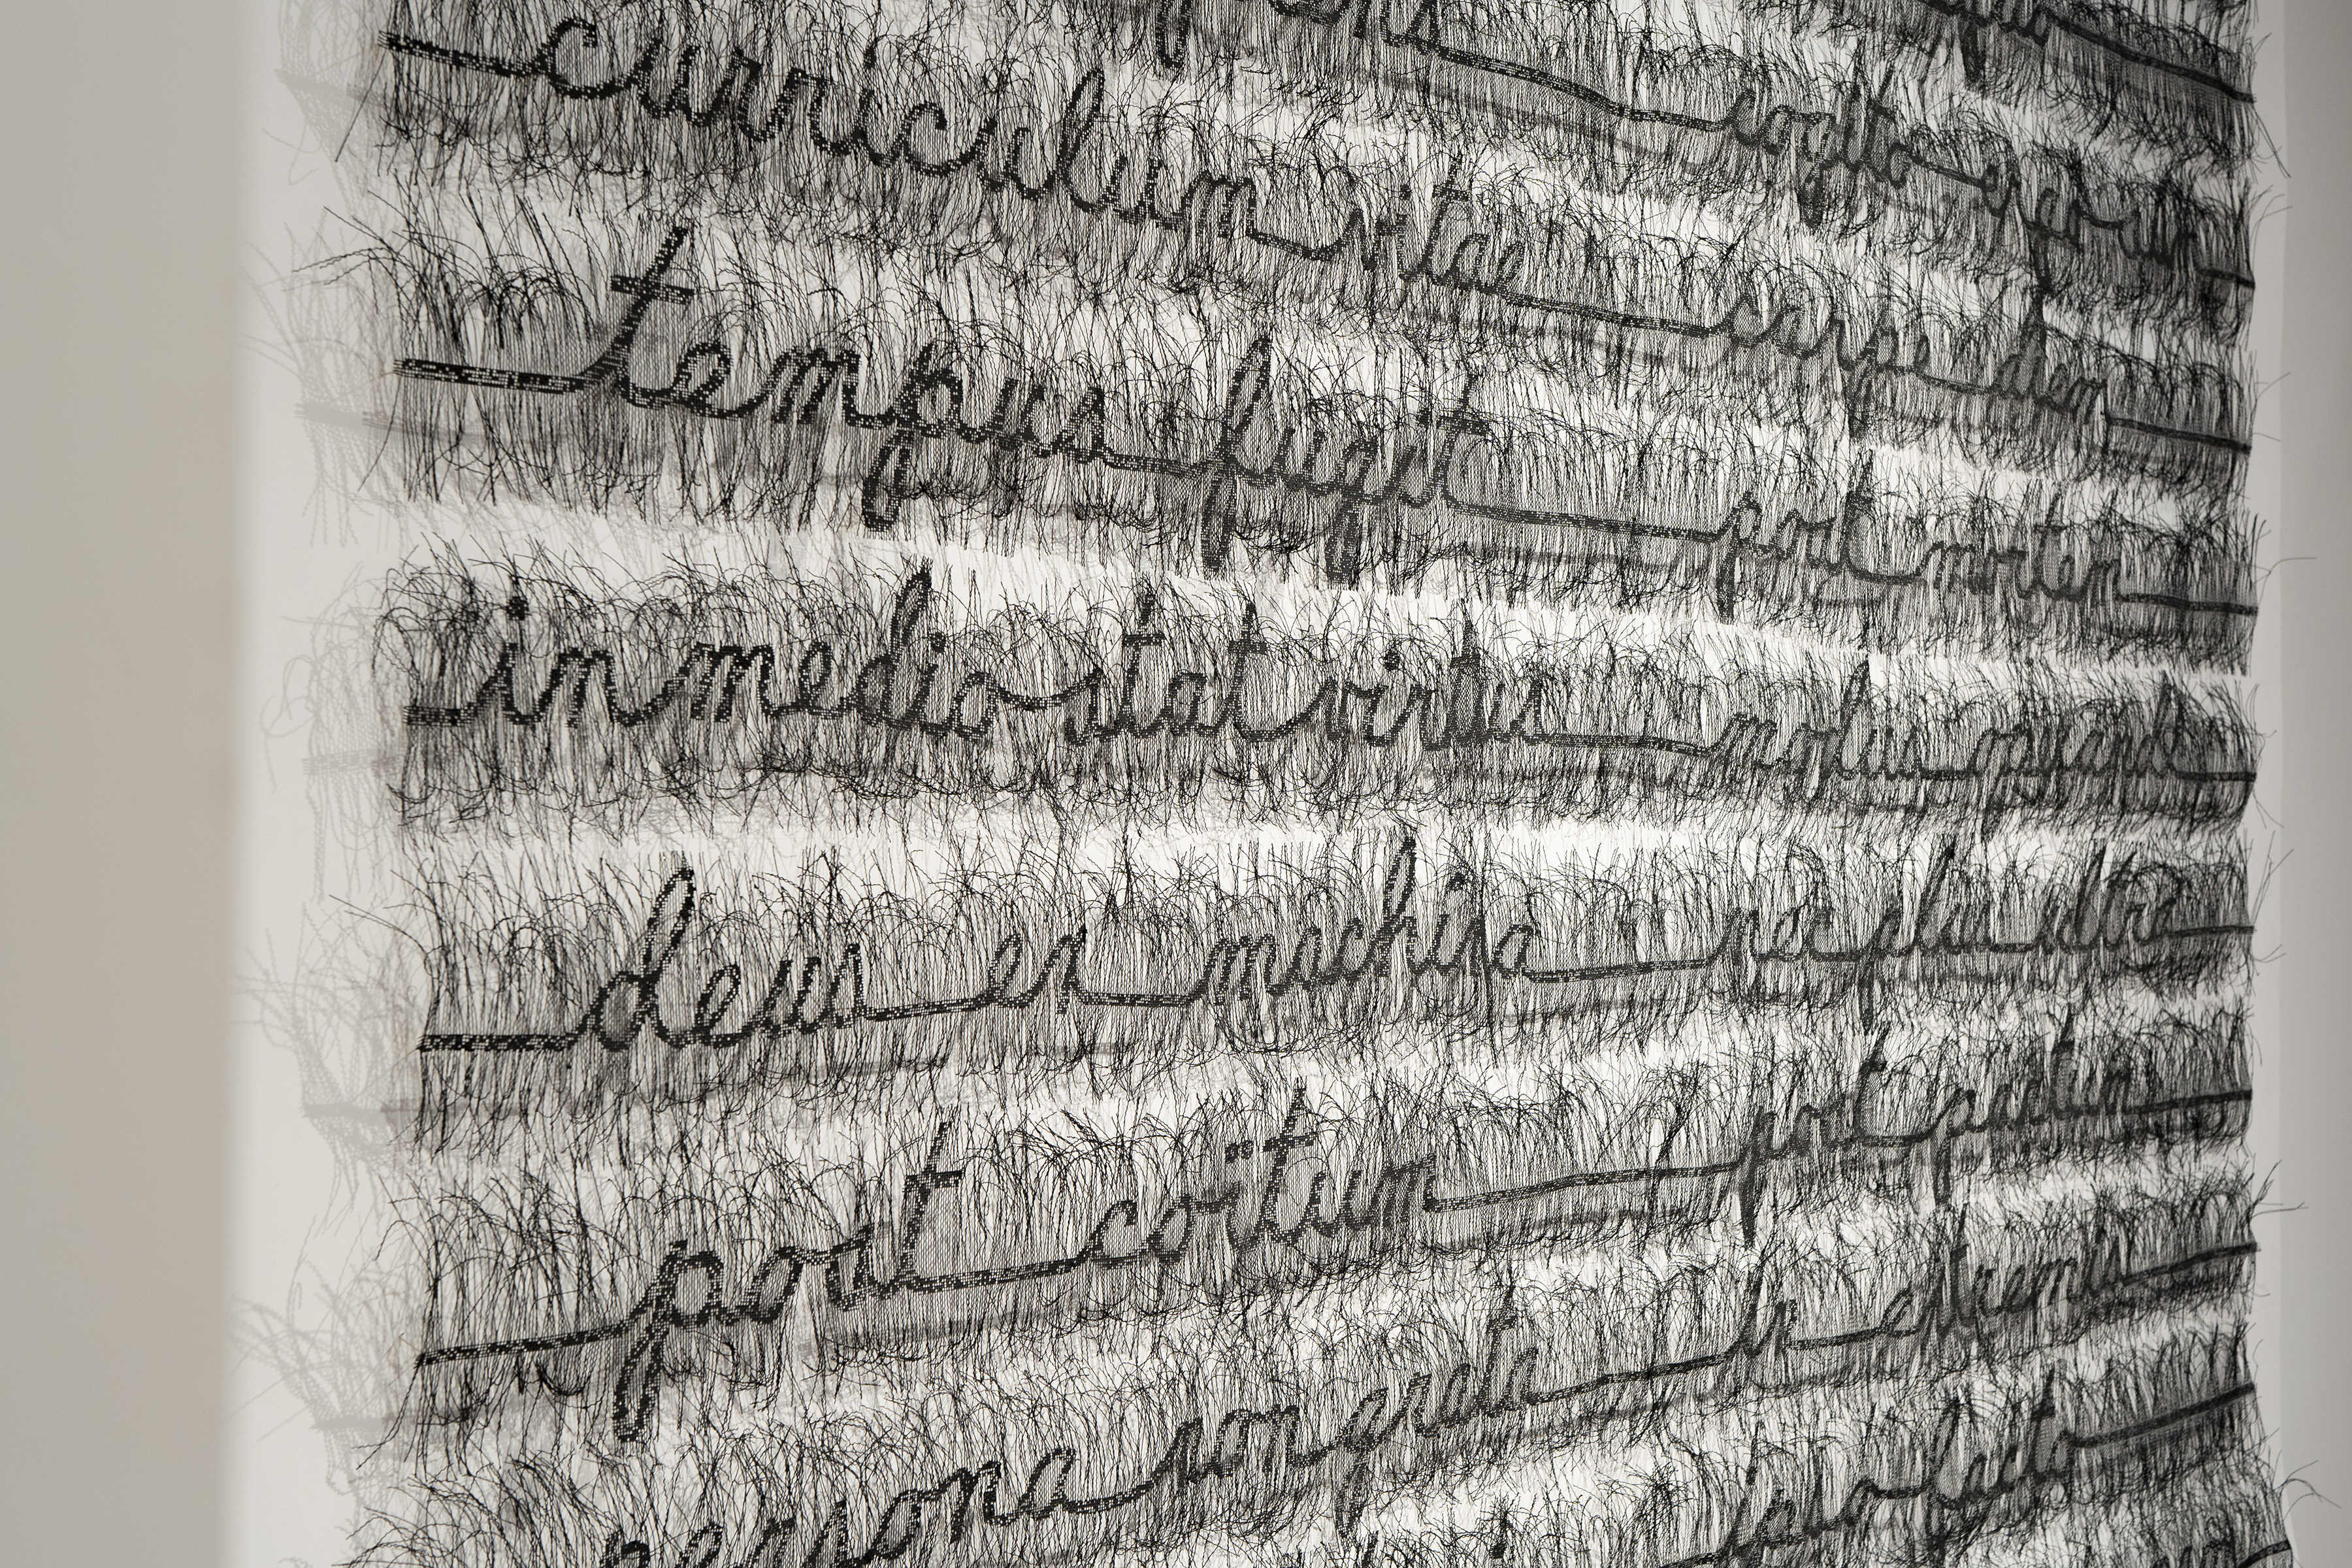 cogito ergo sum
curriculum vitae carpe diem
tempus fugit post mortem
in medio stat virtus modus operandi
deus ex machina nec plus ultra
post coïtum post partum
persona non grata in extremis
ipso facto